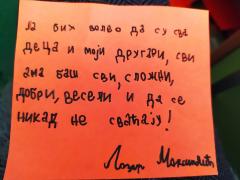 Ја бих волео да су сва
деца и моји другари, сви
ама баш сви, сложни,
добри, весели и да се
никад не свађају!
Лазар Максимовић